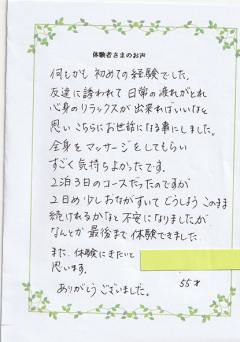 体験者さまのお声
何しかも初めての経験でした。
友達に誘われて日常の疲れがとれ
心身のリラックスが出来ればいいなと
思いこちらにお世話になる事にしました。
全身をマッサージをしてもらい
すごく気持ちよかったです。
2泊3日のコースだったのですが
2日め少しおなかすいてどうしようこのまま
続けれるかなと不安になりましたが
なんとか最後まで体験できました。
また、体験にきたいと
思います。
55才
ありがとうございました。